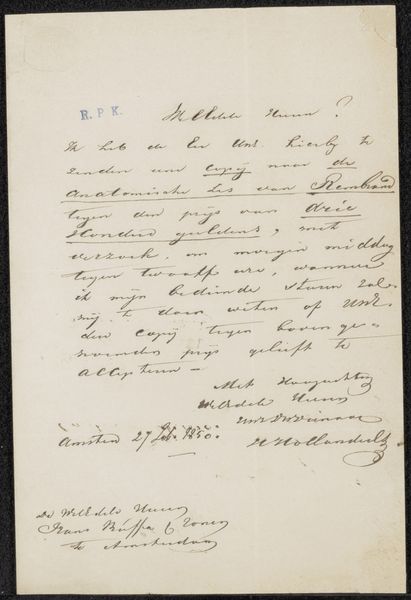 R. P. K.
WelEdele Heeren!
Ik heb de Eer UwE. hierby te
zenden een copij naar de
Anatomische Les van Rembrand
tegen den prijs van drie
Honderd guldens, met
verzoek, om morgen middag
tegen twaalf ure, wanneer
ik mijn bediende sturen zal
mij te doen weten of UwE.
den copij tegen boven ge-
noemden prijs gelieft te
accepteren —
Met Hoogachting
WelEdele Heeren
UwE Dw Dienaar
Amsterd 27 1850.
De WelEdele Heeren
Frans Buffa & Zonen
te Amsterdam